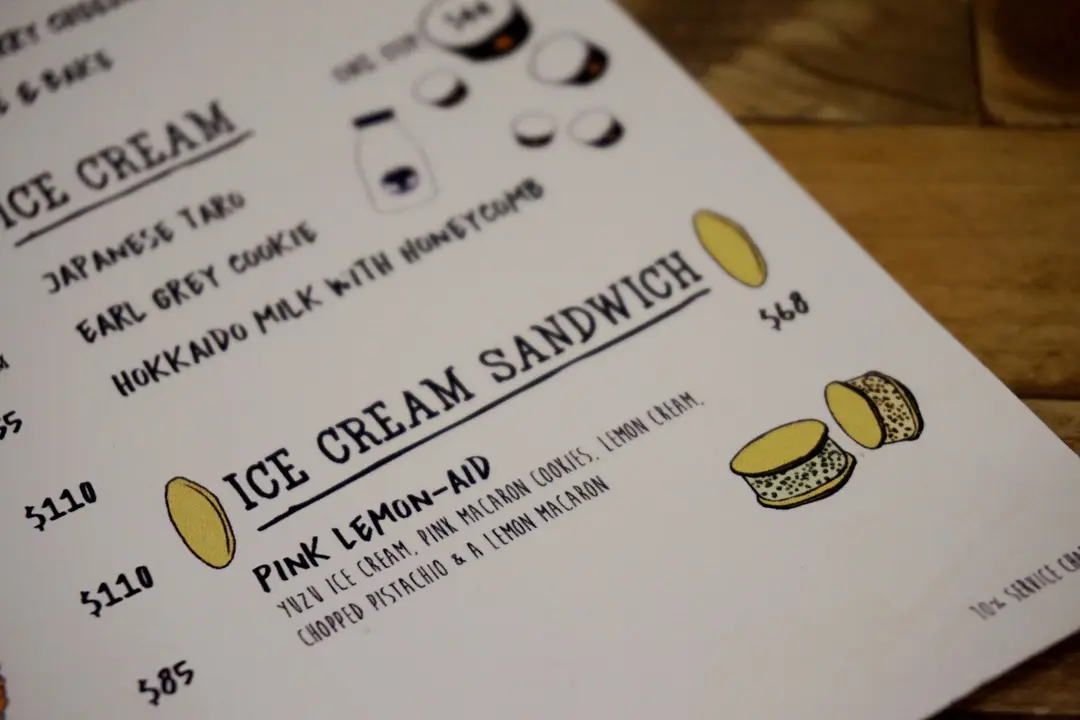 & BAKE
ICE CREAM
JAPANESE TARO
EARL GREY COOKIE
HOKKAIDO MILK WITH HONEYCOMB
ICE CREAM SANDWICH
$68
PINK LEMON-AID
YUZU ICE CREAM, PINK MACARON COOKIES, LEMON CREAM,
CHOPPED PISTACHIO & A LEMON MACARON
$110
$110
$85
10% SERVICE